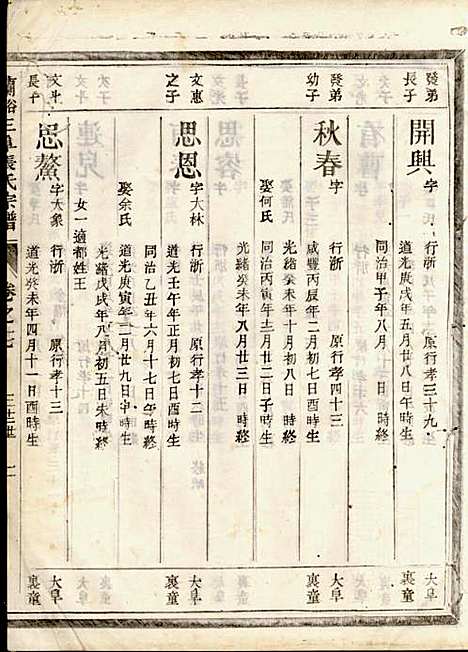 發弟
長子
開興
字
行浙 原行孝三十九
道光庚戌年五月廿八日午時生
同治甲子年八月 日 時終
大阜
裏童
發弟
幼子
秋春
字
行浙 原行孝四十三
咸豐丙辰年二月初七日酉時生
光緒癸未年十月初八日 時終
娶何氏
同治丙寅年二月二二日子時生
光緒癸未年八月廿三日 時終
大阜
裏童
文惠
之子
思恩
字大林
行浙 原行孝十二
道光壬午年正月初七日酉時生
同治乙丑年六月十七日午時終
娶余氏
道光庚寅年二月廿九日申時生
光緒戊戌年八月初五日未時終
女一適都姓王
大阜
裏童
文斗
長子
思鰲
字大象
行浙 原行孝十三
道光癸未年四月十一日酉時生
大阜
裏童
張氏宗譜
卷之七